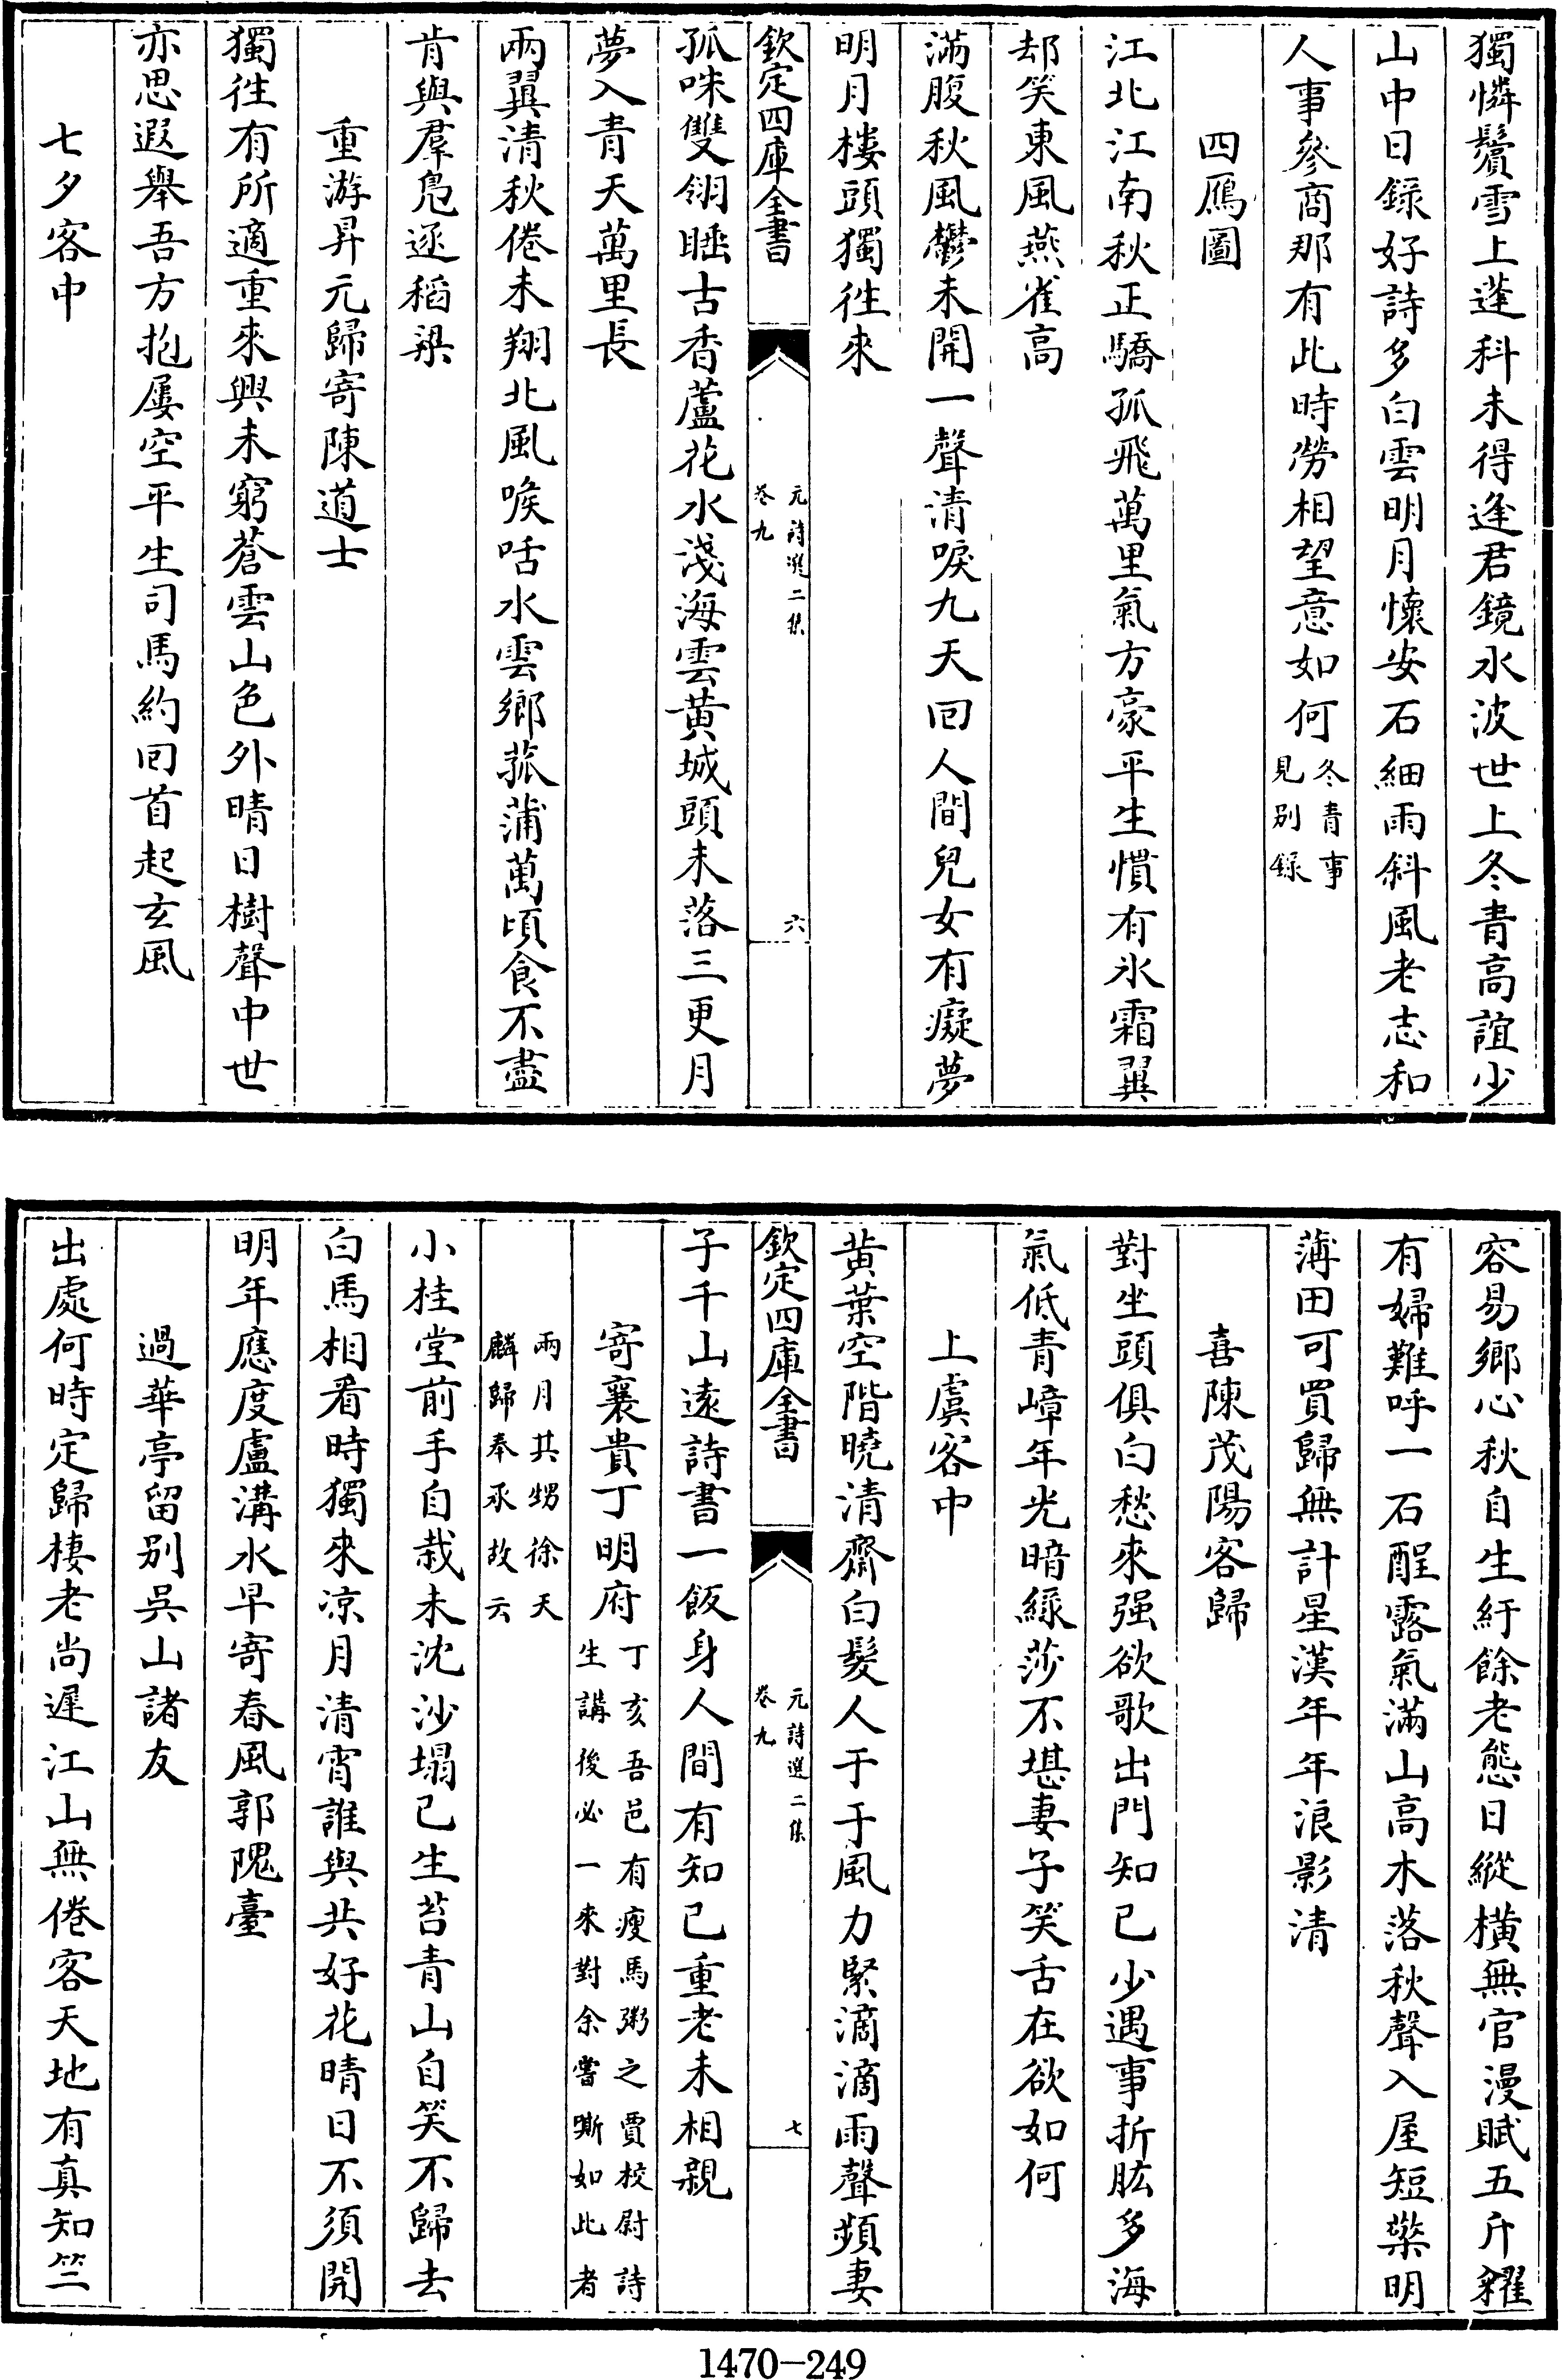 獨憐鬢雪上蓬科未得逢君鏡水波世上冬青高誼少
山中日録好詩多白雲明月懷安石細雨斜風老志和
人事參商那有此時勞相望意如何冬青事見别録
四鴈圖
江北江南秋正驕孤飛萬里氣方豪平生慣有氷霜翼
却笑東風燕雀高
滿腹秋風鬱未開一聲清唳九天回人間兒女有癡夢
明月樓頭獨徃來
欽定四庫全書
元詩選二集
卷九
六
孤咮雙翎睡古香蘆花水淺海雲黄城頭未落三更月
夢入青天萬里長
兩翼清秋倦未翔北風喉咶水雲鄉菰蒲萬頃食不盡
肯與羣鳬逐稻粱
重游昇元歸寄陳道士
獨徃有所適重來興未窮蒼雲山色外晴日樹聲中世
亦思遐舉吾方抱屢空平生司馬約回首起玄風
七夕客中
容易鄉心秋自生紆餘老態日縱橫無官漫賦五斤糴
有婦難呼一石酲露氣滿山高木落秋聲入屋短檠明
薄田可買歸無計星漢年年浪影清
喜陳茂陽客歸
對坐頭俱白愁來强欲歌出門知已少遇事折肱多海
氣低青嶂年光暗緑莎不堪妻子笑舌在欲如何
上虞客中
黄葉空階曉清齋白髮人于于風力緊滴滴雨聲頻妻
欽定四庫全書
元詩選二集
卷九
七
子千山遠詩書一飯身人間有知已重老未相親
寄襄貴丁明府丁亥吾邑有瘦馬粥之賈校尉詩生講後必一來對余嘗嘶如此者
兩月其甥徐天麟歸奉承故云
小桂堂前手自栽未沈沙塌已生苔青山自笑不歸去
白馬相看時獨來凉月清宵誰與共好花晴日不須開
明年應度盧溝水早寄春風郭隗臺
過華亭留别吳山諸友
出處何時定歸棲老尚遲江山無倦客天地有真知竺
1470-249